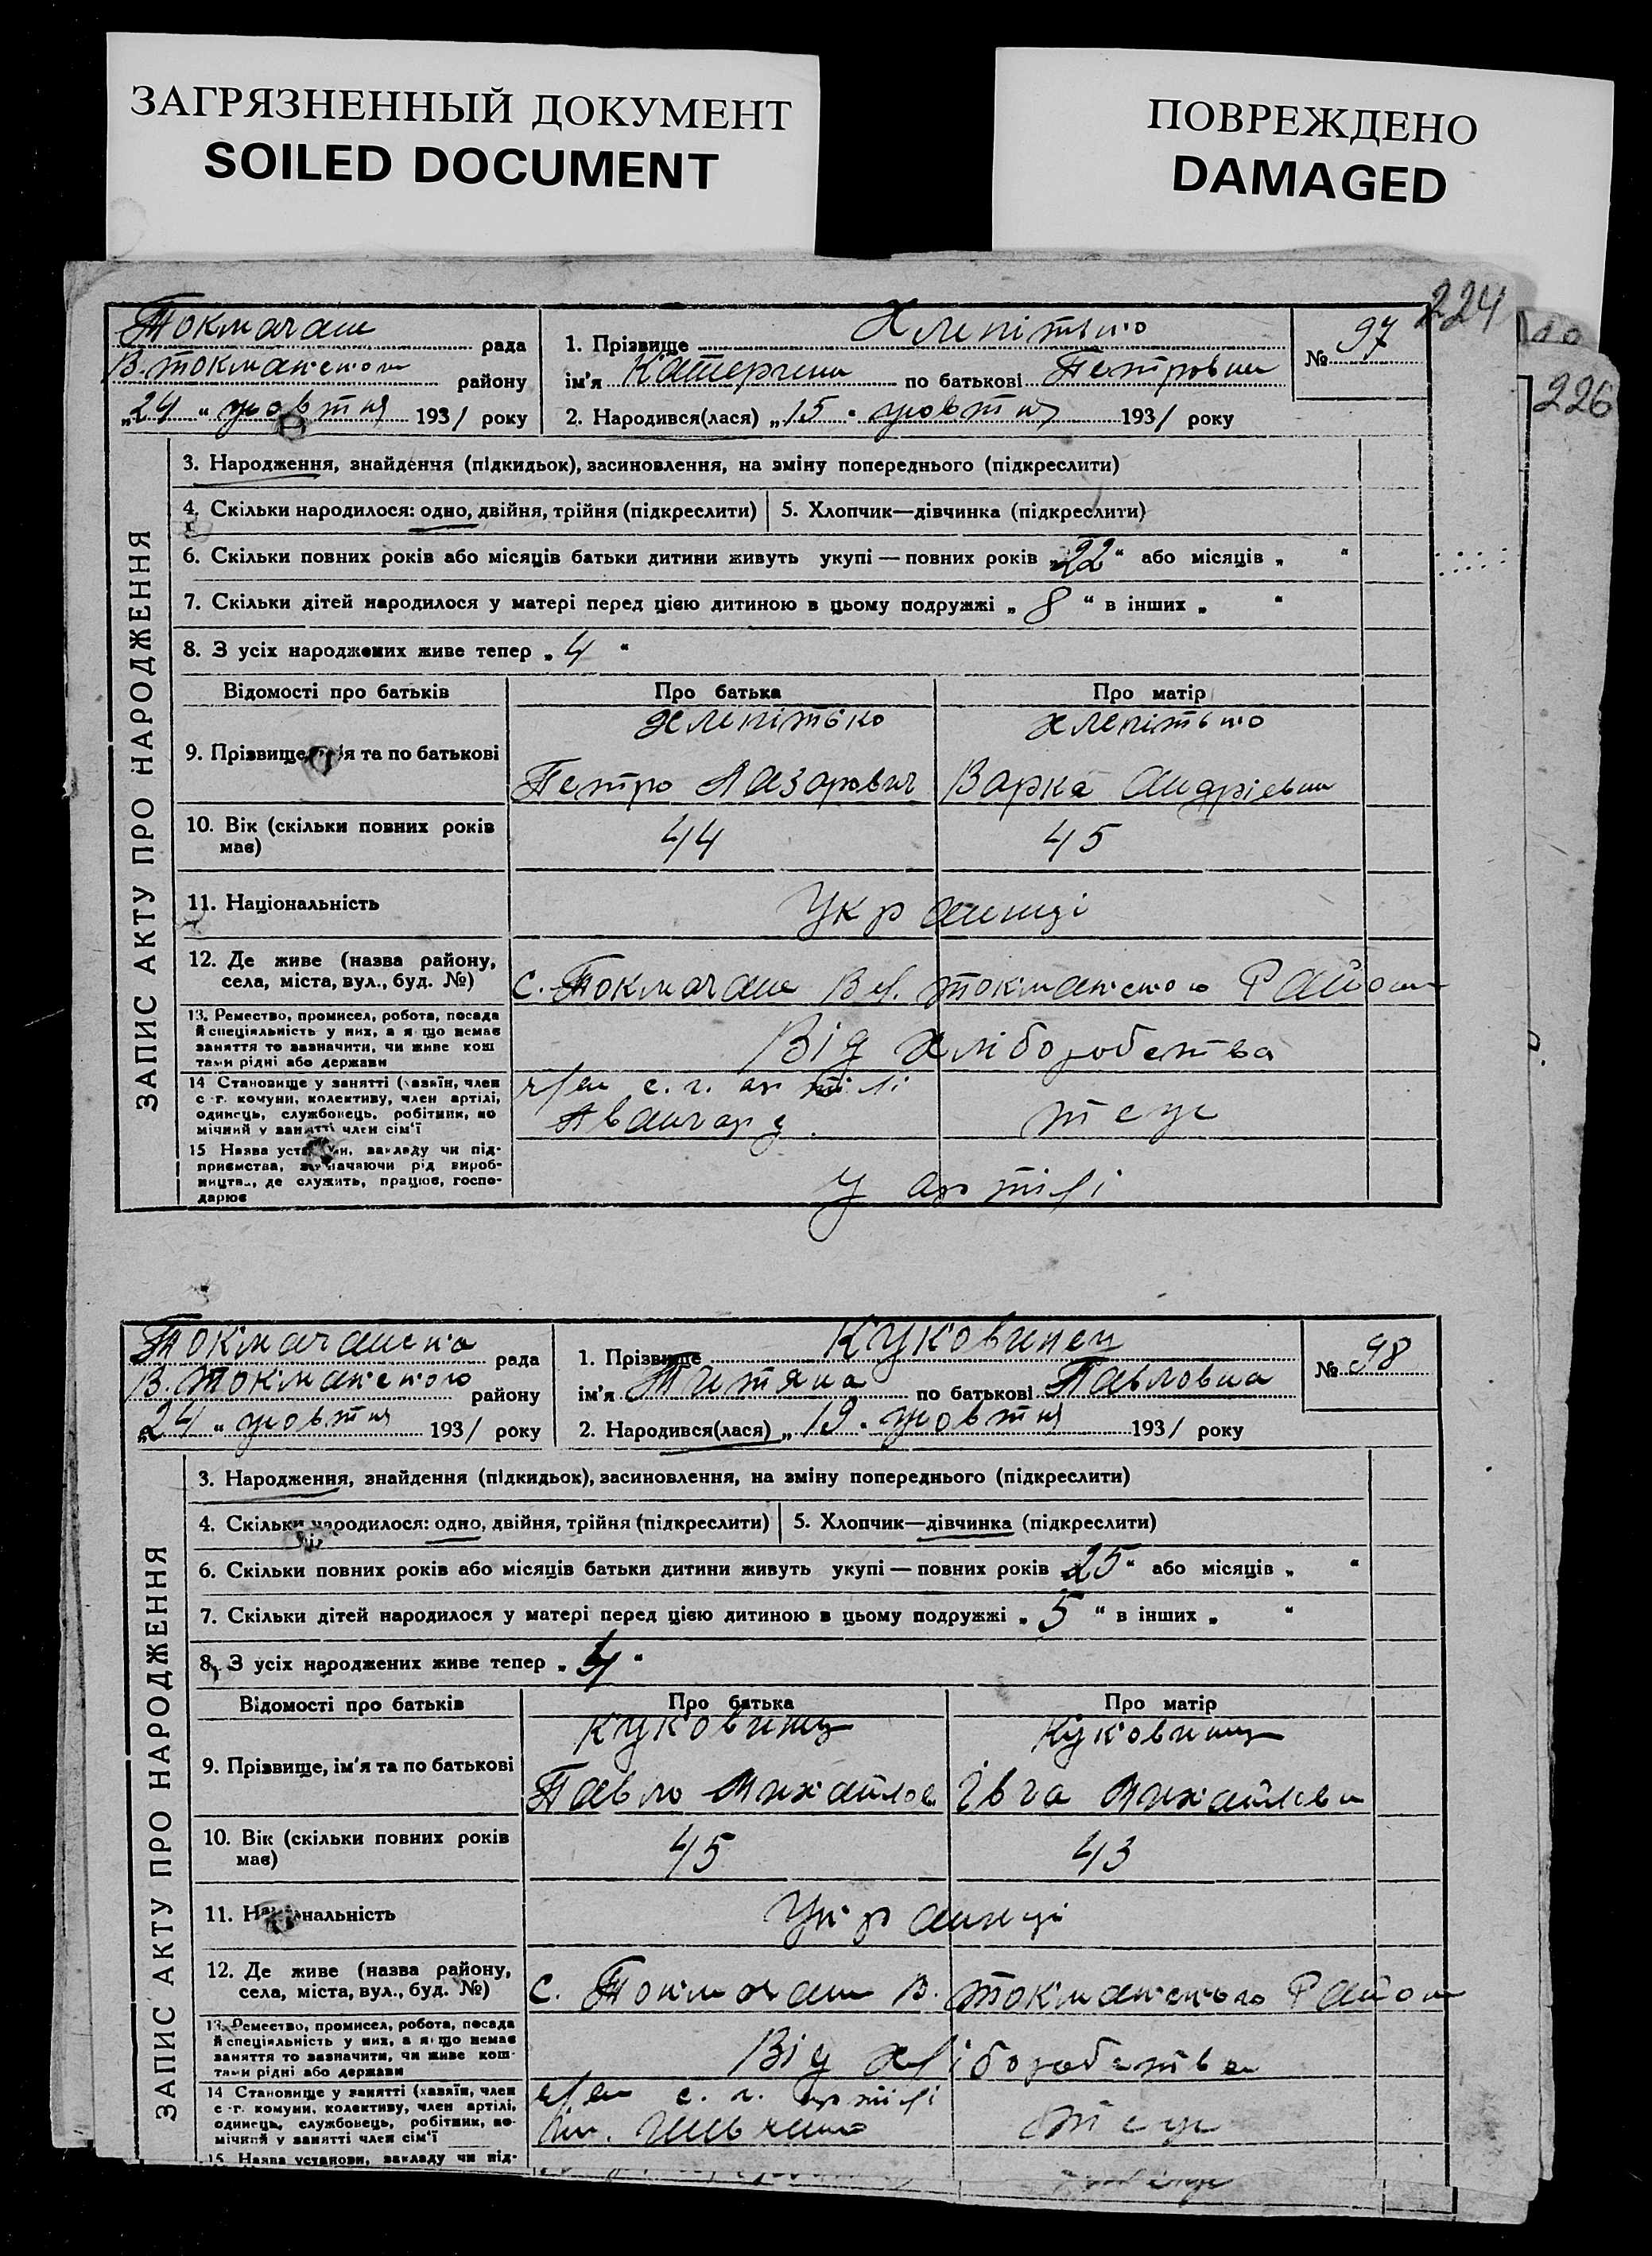 ЗАГРЯЗНЕННЫЙ ДОКУМЕНТ
SOILED DOCUMENT
ПОВРЕЖДЕНО
DAMAGED
224
226
ЗАПИС АКТУ ПРО НАРОДЖЕННЯ
Токмачан рада
В. Токманського району
„24“ жовтня 1931 року
1. Прізвище
ім'я Катерина по батькові Петровна
2. Народився(лася) „15“ жовтня 1931 року
№ 97
3. Народження, знайдення (підкидьок), засиновлення, на зміну попереднього (підкреслити)
4. Скільки народилося: одно, двійня, трійня (підкреслити) 5. Хлопчик—дівчинка (підкреслити)
6. Скільки повних років або місяців батьки дитини живуть укупі — повних років „22“ або місяців „ “
7. Скільки дітей народилося у матері перед цією дитиною в цьому подружжі „8“ в інших „ “
8. З усіх народжених живе тепер „4“
Відомості про батьків Про батька Про матір
9. Прізвище, ім'я та по батькові
Петро Лазарович Варка Андрієвна
10. Вік (скільки повних років має) 44 45
11. Національність Українці
12. Де живе (назва району, села, міста, вул., буд. №) с. Токмачан Вел. Токманського Району
13. Ремество, промисел, робота, посада
й спеціяльність у них, а якщо немає
заняття то зазначити, чи живе кош
тами рідні або держави
Від хліборобства
14 Становище у занятті (хазяїн, член
с-г. комуни, колективу, член артілі,
одинець, службовець, робітник, по
мічний у занятті член сім'ї
член с. г. артілі
Авангард. теж
15 Назва установи, закладу чи під-
приємства, зазначаючи рід вироб-
ництва, де служить, працює, госпо-
дарює
у артілі
ЗАПИС АКТУ ПРО НАРОДЖЕННЯ
Токмачанська рада
В. Токманського району
„24“ жовтня 1931 року
1. Прізвище Куковинец
ім'я Титяна по батькові Павловна
2. Народився(лася) „19“ жовтня 1931 року
№ 98
3. Народження, знайдення (підкидьок), засиновлення, на зміну попереднього (підкреслити)
4. Скільки народилося: одно, двійня, трійня (підкреслити) 5. Хлопчик—дівчинка (підкреслити)
6. Скільки повних років або місяців батьки дитини живуть укупі — повних років „25“ або місяців „ “
7. Скільки дітей народилося у матері перед цією дитиною в цьому подружжі „5“ в інших „ “
8. З усіх народжених живе тепер „4“
Відомості про батьків Про батька Про матір
Куковинец Куковинец
9. Прізвище, ім'я та по батькові
Павло Михайлов Івга Михайловн
10. Вік (скільки повних років має) 45 43
11. Національність Українці
12. Де живе (назва району, села, міста, вул., буд. №) с. Токмачан В. Токманського Району
13. Ремество, промисел, робота, посада
й спеціяльність у них, а якщо немає
заняття то зазначити, чи живе кош-
тами рідні або держави
Від хліборобства
14 Становище у занятті (хазяїн, член
с-г. комуни, колективу, член артілі,
одинець, службовець, робітник, по-
мічний у занятті член сім'ї
член с. г. артілі
ім. Шевченко теж
15. Назва установи, закладу чи під-